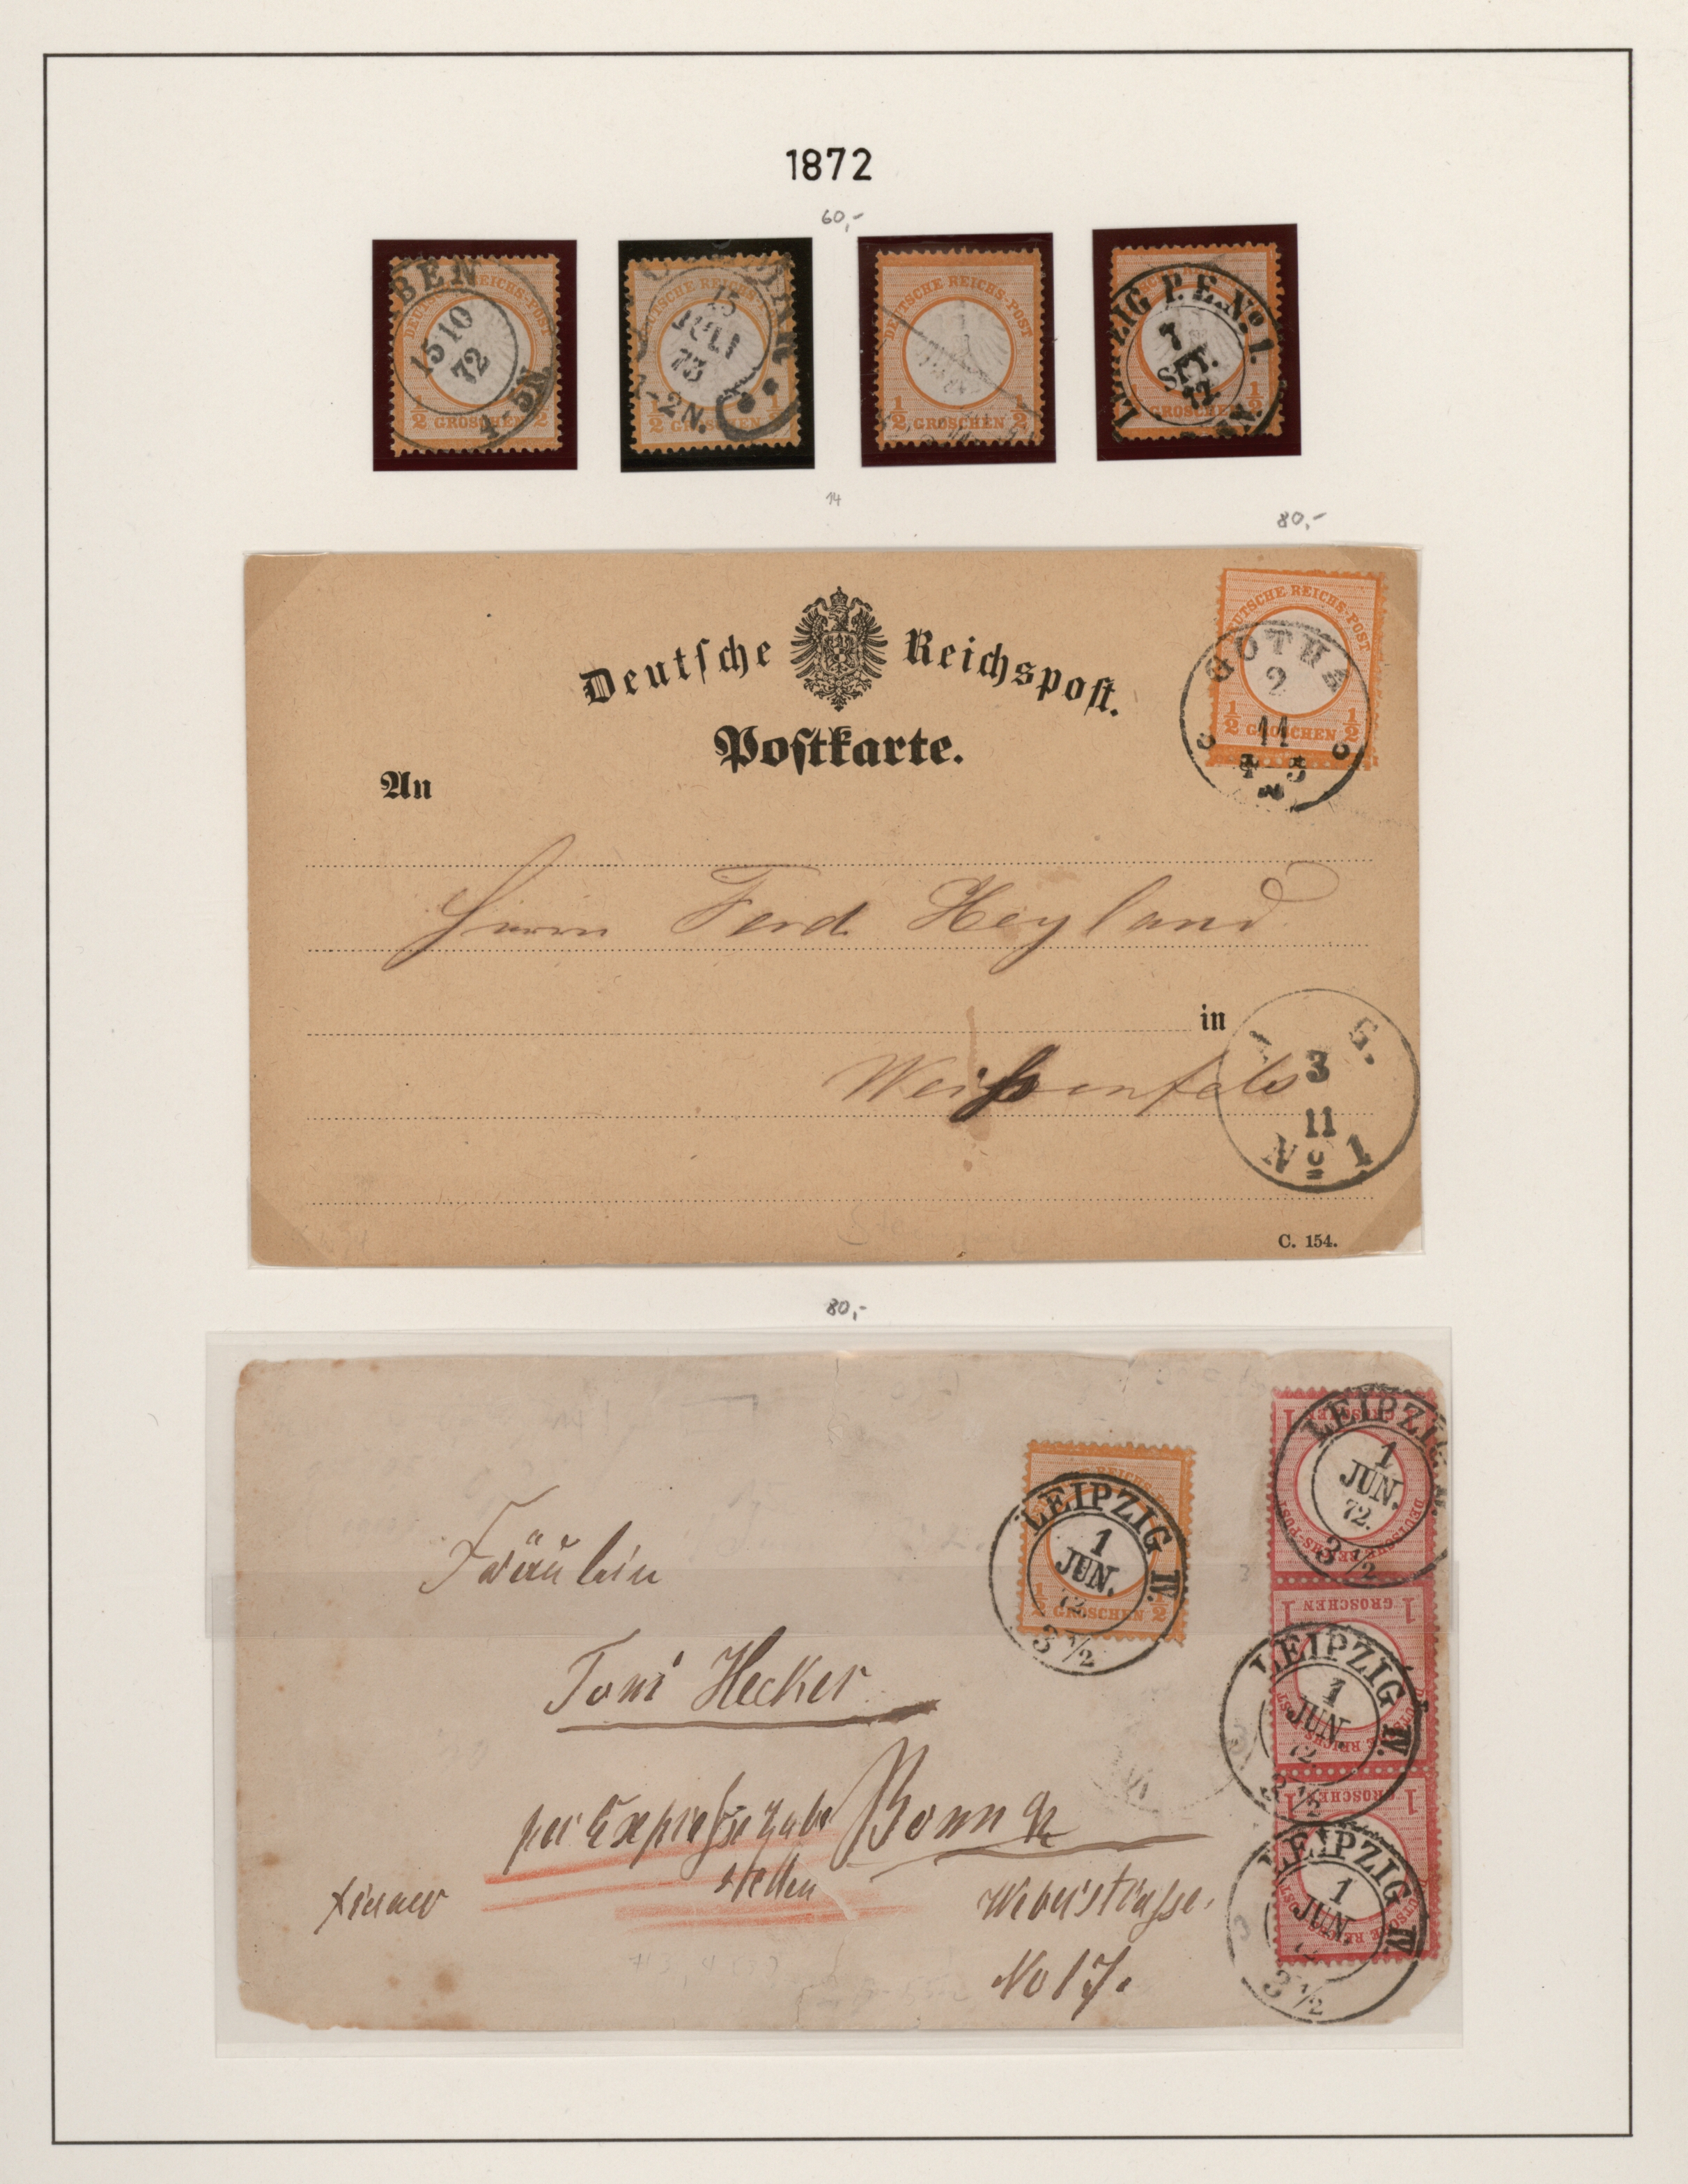 1872
60,-
BEN
15 10
72
4-5N
DEUTSCHE REICHS-POST
1/2 GROSCHEN 1/2
15
JULI
73
-2N.
REICHS
1/2 GROSCHEN 1/2
DEUTSCHE REICHS-POST
1/2 GROSCHEN 1/2
LEIPZIG P.E.No. 1.
7
SPT.
72
GROSCHEN 1/2
14
80,-
Deutsche Reichspost.
Postkarte.
DEUTSCHE REICHS-POST
1/2 GROSCHEN 1/2
GOTHA
2
11
4 5
N
An
Herrn Ferd Heyland
in
Weißenfels
G.
3
11
No 1
C. 154.
80,-
Fräulein
Toni Hecker
per Expresse zu be
stellen
Bonn a/R
Weberstrasse.
No 17.
REICHS
1/2 GROSCHEN 1/2
LEIPZIG IV.
1
JUN.
72.
3 1/2
1 GROSCHEN 1
DEUTSCHE REICHS-POST
LEIPZIG IV.
1
JUN.
72.
3 1/2
1 GROSCHEN 1
DEUTSCHE REICHS-POST
LEIPZIG IV.
1
JUN.
72.
3 1/2
1 GROSCHEN 1
DEUTSCHE REICHS-POST
LEIPZIG IV.
1
JUN.
3 1/2